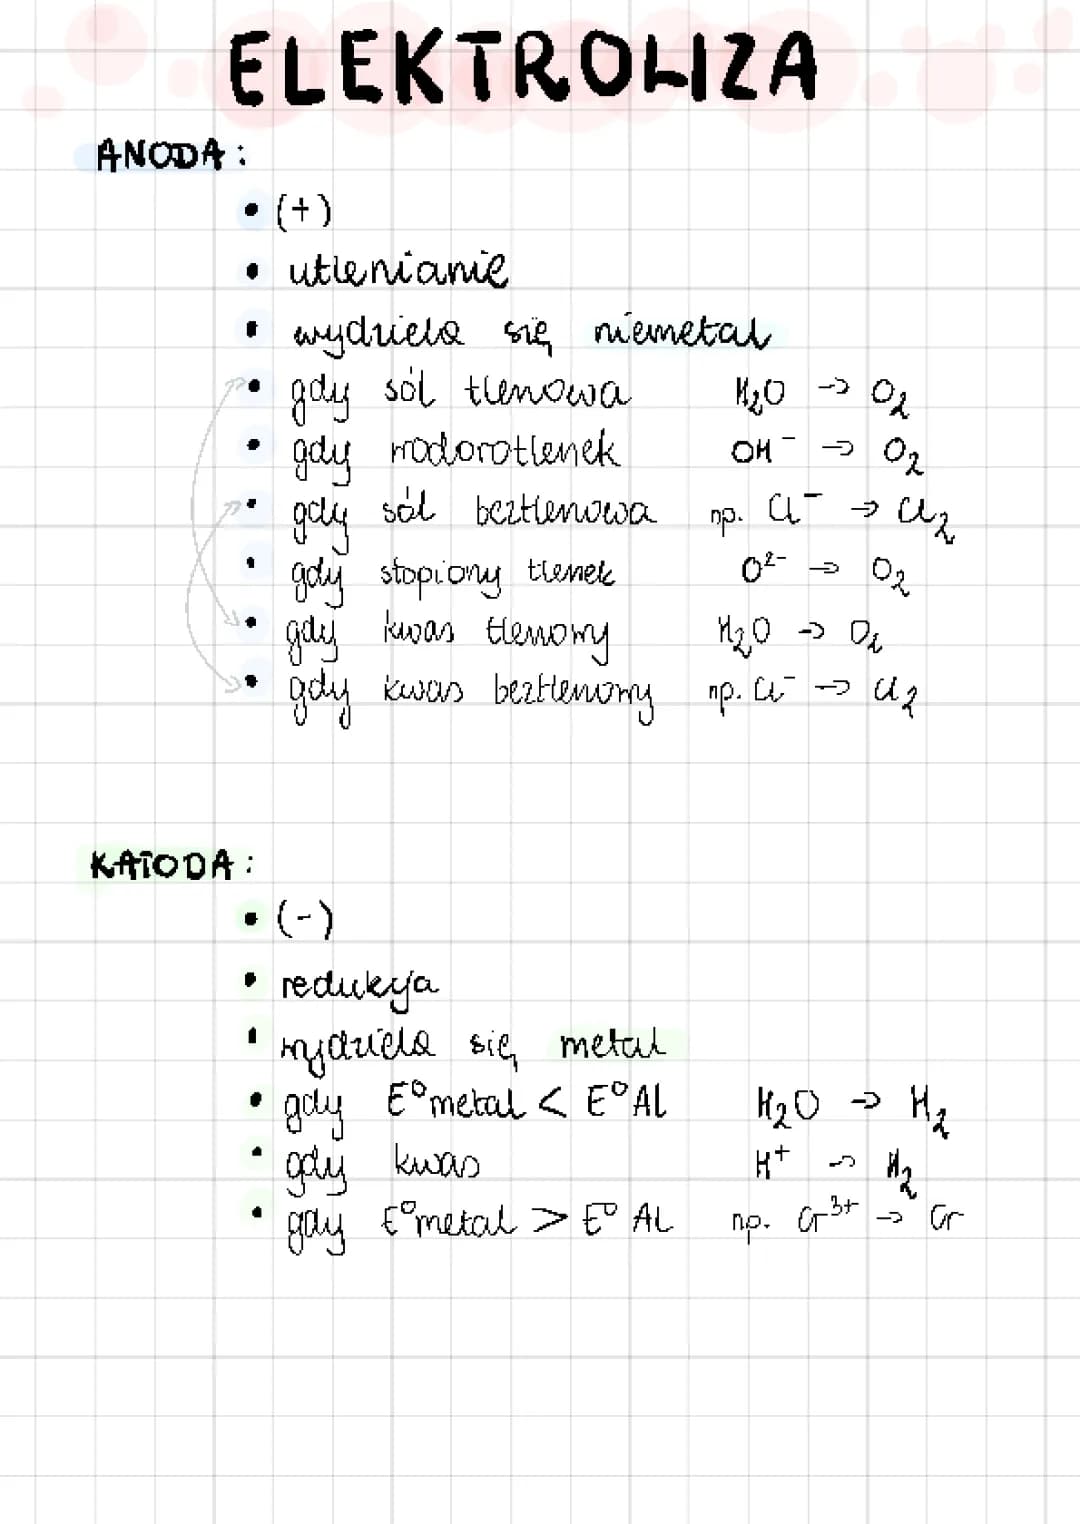 ELEKTROLIZA
ANODA:
• (+)
• utlenianie
• wydziela się niemetal
• gdy sól tlenowa H₂O → O₂
• gdy wodorotlenek OH⁻ → O₂
• gdy sól beztlenowa np. Cl⁻ → Cl₂
• gdy stopiony tlenek O²⁻ → O₂
• gdy kwas tlenowy H₂O → O₂
• gdy kwas beztlenowy np. Cl⁻ → Cl₂
KATODA:
• (-)
• redukcja
• wydziela się metal
• gdy E°metal < E°Al H₂O → H₂
• gdy kwas H⁺ → H₂
• gdy E°metal > E° Al np. Cr³⁺ → Cr